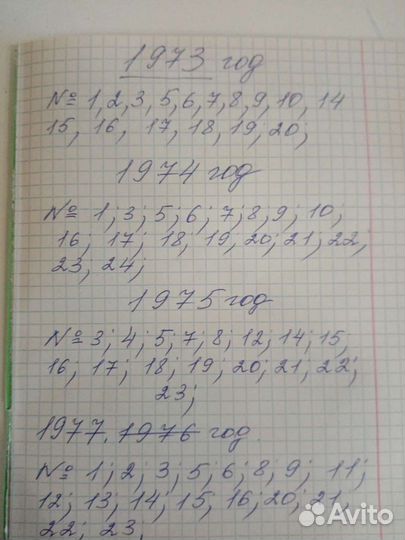 1973 год
№ 1,2,3,5,6,7,8,9,10, 14
15, 16, 17, 18, 19; 20;
1974 год
№ 1; 3; 5; 6; 7; 8; 9; 10;
16; 17; 18; 19, 20; 21; 22;
23, 24;
1975 год
№ 3; 4; 5; 7; 8; 12; 14; 15;
16; 17; 18; 19; 20; 21; 22;
23;
1977. 1976 год.
№ 1; 2; 3; 5; 6; 8; 9; 11;
12; 13; 14; 15, 16; 20; 21
22; 23,
Avito